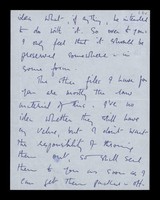 idea what, if anything, he intended
to do with it. So even to you
I only feel that it should be
preserved somewhere – in
some form.
The other files I have for
you are mostly the raw
material of this. I've no
idea whether they still have
any value, but I don't want
the responsibility of throwing
them out, so shall send
them to you as soon as I
can get them packed – off.